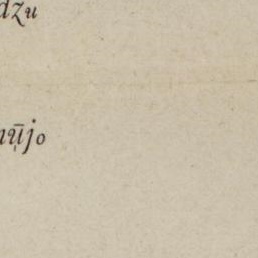 dzu
nū̩jo